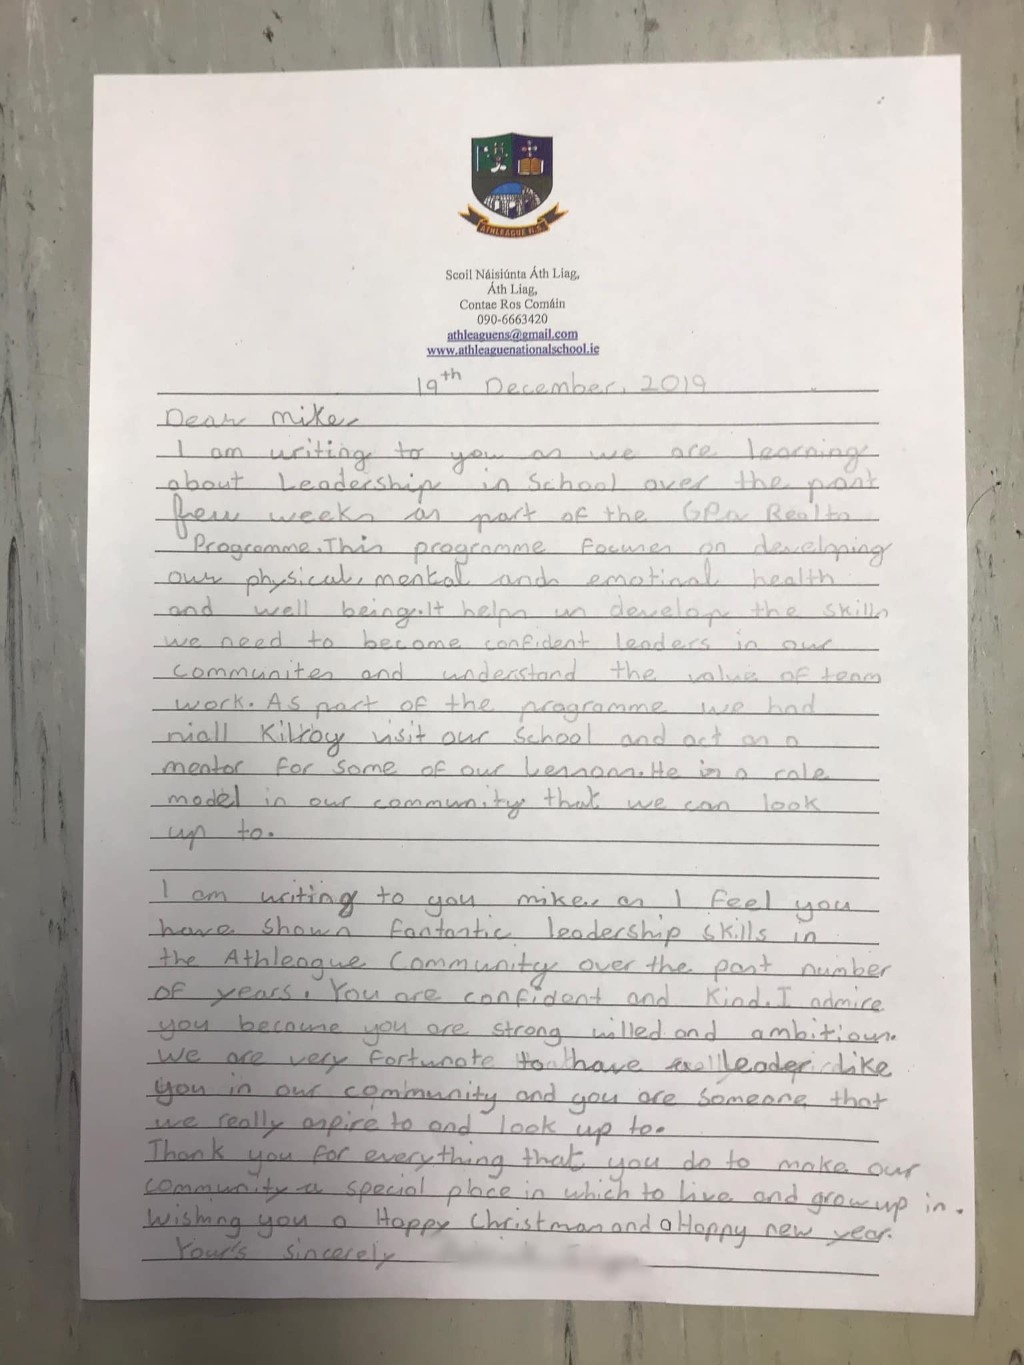 ATHLEAGUE N.S.
Scoil Náisiúnta Áth Liag,
Áth Liag,
Contae Ros Comáin
090-6663420
athleaguens@gmail.com
www.athleaguenationalschool.ie
19th December, 2019
Dear Mike,
I am writing to you as we are learning
about Leadership in School over the past
few weeks as part of the GPA Realt
Programme. This programme focuses on developing
our physical, mental and emotinal health
and well being. It helps us develop the skills
we need to become confident leaders in our
communites and understand the value of team
work. As part of the programme we had
niall Kilroy visit our School and act as a
mentor for some of our Lessons. He is a role
model in our community that we can look
up to.
I am writing to you mike, as I feel you
have shown fantastic leadership skills in
the Athleague Community over the past number
of years. You are confident and kind. I admire
you because you are strong willed and ambitious.
We are very fortunate to have leader like
you in our community and you are someone that
we really aspire to and look up to.
Thank you for everything that you do to make our
community a special place in which to live and grow up in.
Wishing you a Happy Christmas and a Happy new year.
Your's sincerely